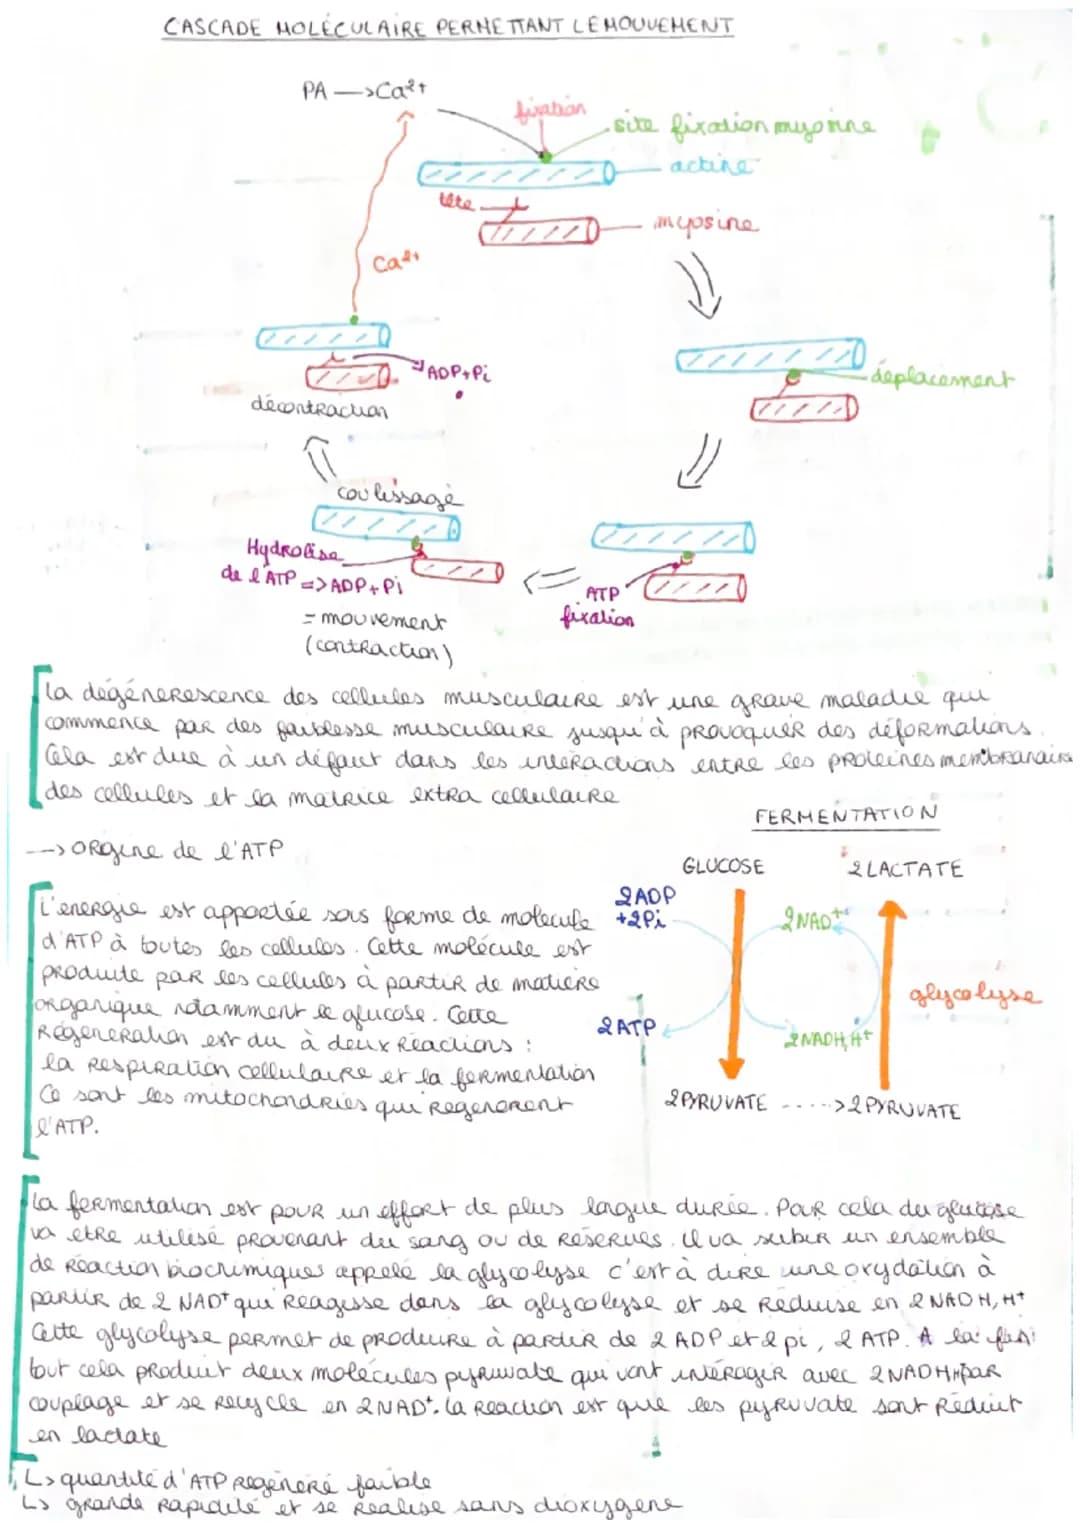 CASCADE MOLÉCULAIRE PERMETTANT LE MOUVEMENT
PA —>Ca²+
fixation
site fixation myosine
actine
tête
myosine
Ca²+
ADP+Pi
décontraction
déplacement
coulissage
Hydrolise
de l'ATP => ADP+Pi
= mouvement
(contraction)
ATP
fixation
La dégénérescence des cellules musculaire est une grave maladie qui
commence par des faiblesse musculaire jusqu'à provoquer des déformations.
Cela est due à un défaut dans les intéractions entre les protéines membranaire
des cellules et la matrice extra cellulaire
FERMENTATION
--> origine de l'ATP
GLUCOSE
2 LACTATE
2ADP
+2Pi
2NAD+
glycolyse
2ATP
2NADH, H+
2PYRUVATE ----> 2 PYRUVATE
L'énergie est apportée sous forme de molécule
d'ATP à toutes les cellules. Cette molécule est
produite par les cellules à partir de matière
organique notamment le glucose. Cette
Régénération est du à deux réactions :
la respiration cellulaire et la fermentation
Ce sont les mitochondries qui regénèrent
l'ATP.
La fermentation est pour un effort de plus longue durée. Pour cela du glucose
va etre utilisé provenant du sang ou de réserves. Il va subir un ensemble
de réaction biochimiques appelé la glycolyse c'est à dire une oxydation à
partir de 2 NAD+ qui réagisse dans la glycolyse et se réduise en 2 NADH, H+
Cette glycolyse permet de produire à partir de 2 ADP et 2 pi, 2 ATP. A la fin
tout cela produit deux molécules pyruvate qui vont intéragir avec 2NADH,H+ par
couplage et se recycle en 2NAD+. La réaction est que les pyruvate sont réduit
en lactate
L> quantité d'ATP regénéré faible
L> grande rapidité et se réalise sans dioxygène